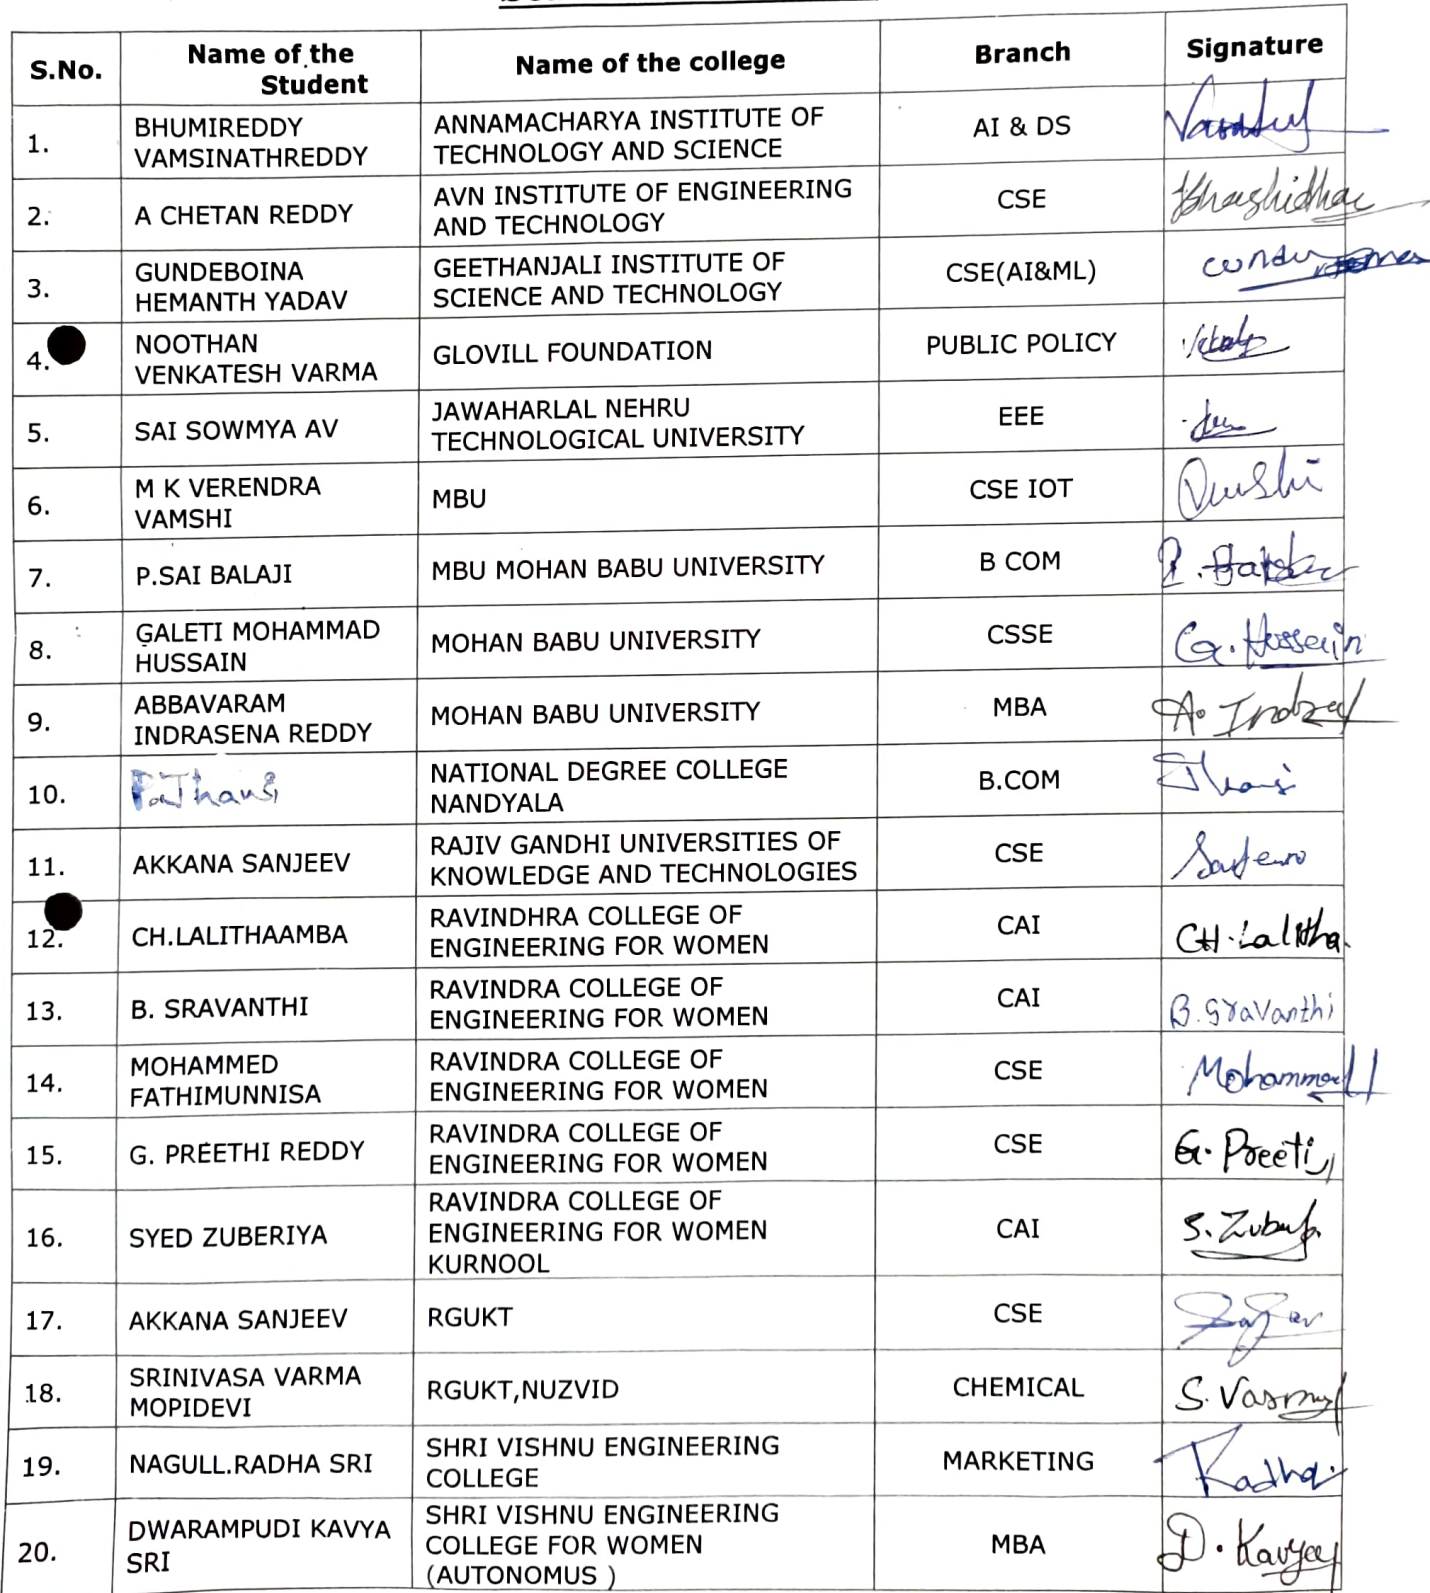 S.No.
Name of the
Student
Name of the college
Branch
Signature
1.
BHUMIREDDY
VAMSINATHREDDY
ANNAMACHARYA INSTITUTE OF
TECHNOLOGY AND SCIENCE
AI & DS
2.
A CHETAN REDDY
AVN INSTITUTE OF ENGINEERING
AND TECHNOLOGY
CSE
3.
GUNDEBOINA
HEMANTH YADAV
GEETHANJALI INSTITUTE OF
SCIENCE AND TECHNOLOGY
CSE(AI&ML)
4.
NOOTHAN
VENKATESH VARMA
GLOVILL FOUNDATION
PUBLIC POLICY
5.
SAI SOWMYA AV
JAWAHARLAL NEHRU
TECHNOLOGICAL UNIVERSITY
EEE
6.
M K VERENDRA
VAMSHI
MBU
CSE IOT
7.
P.SAI BALAJI
MBU MOHAN BABU UNIVERSITY
B COM
8.
GALETI MOHAMMAD
HUSSAIN
MOHAN BABU UNIVERSITY
CSSE
G. Hussain
9.
ABBAVARAM
INDRASENA REDDY
MOHAN BABU UNIVERSITY
MBA
10.
P. Jhansi
NATIONAL DEGREE COLLEGE
NANDYALA
B.COM
Jhansi
11.
AKKANA SANJEEV
RAJIV GANDHI UNIVERSITIES OF
KNOWLEDGE AND TECHNOLOGIES
CSE
12.
CH.LALITHAAMBA
RAVINDHRA COLLEGE OF
ENGINEERING FOR WOMEN
CAI
CH.Lalitha
13.
B. SRAVANTHI
RAVINDRA COLLEGE OF
ENGINEERING FOR WOMEN
CAI
B.Sravanthi
14.
MOHAMMED
FATHIMUNNISA
RAVINDRA COLLEGE OF
ENGINEERING FOR WOMEN
CSE
Mohammed
15.
G. PREETHI REDDY
RAVINDRA COLLEGE OF
ENGINEERING FOR WOMEN
CSE
G. Preeti
16.
SYED ZUBERIYA
RAVINDRA COLLEGE OF
ENGINEERING FOR WOMEN
KURNOOL
CAI
17.
AKKANA SANJEEV
RGUKT
CSE
18.
SRINIVASA VARMA
MOPIDEVI
RGUKT,NUZVID
CHEMICAL
19.
NAGULL.RADHA SRI
SHRI VISHNU ENGINEERING
COLLEGE
MARKETING
Radha
20.
DWARAMPUDI KAVYA
SRI
SHRI VISHNU ENGINEERING
COLLEGE FOR WOMEN
(AUTONOMUS )
MBA
D. Kavya